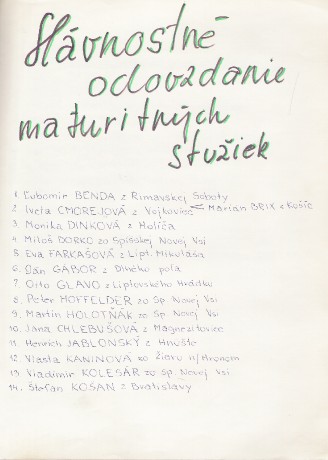 Slávnostné
odovzdanie
maturitných
stužiek
1. Ľubomír BENDA z Rimavskej Soboty
2. Iveta CMOREJOVÁ z Vojkoviec – Marián BRIX z Košíc
3. Monika DINKOVÁ z Holíča
4. Miloš DORKO zo Spišskej Novej Vsi
5. Eva FARKAŠOVÁ z Lipt. Mikuláša
6. Ján GÁBOR z Dlhého poľa
7. Oto GLAVO z Liptovského Hrádku
8. Peter HOFFELDER zo Sp. Novej Vsi
9. Martin HOLOTŇÁK zo Sp. Novej Vsi
10. Jana CHLEBUŠOVÁ z Magnezitoviec
11. Henrich JABLONSKÝ z Hnúšte
12. Vlasta KANINOVÁ zo Žiaru n/Hronom
13. Vladimír KOLESÁR zo Sp. Novej Vsi
14. Štefan KOŠAN z Bratislavy